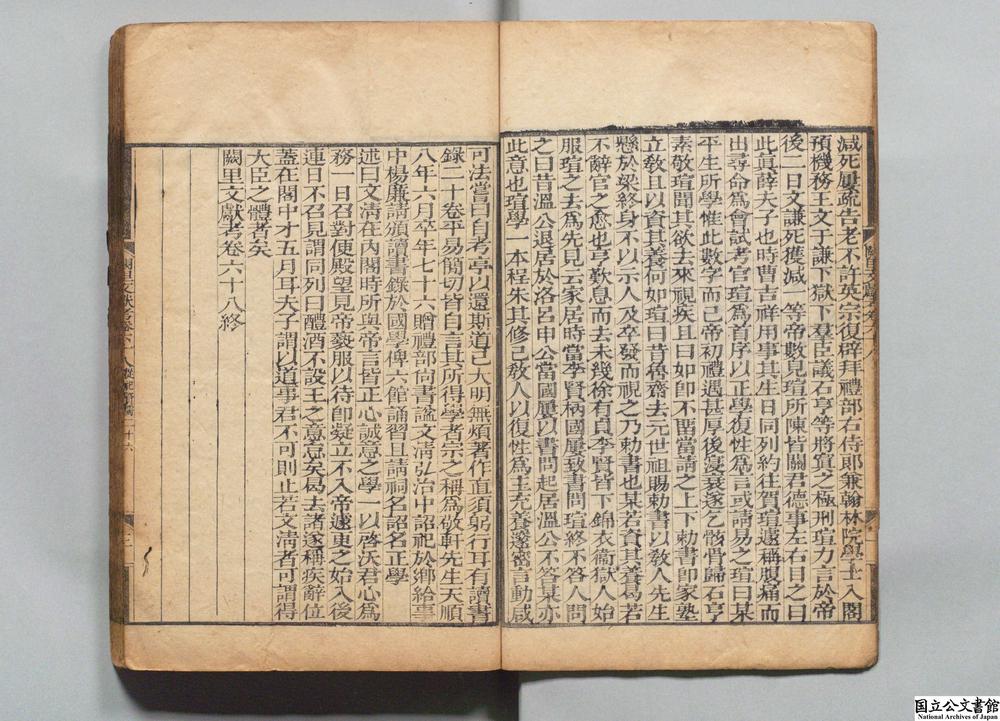 減死屢疏告老不許英宗復辟拜禮部右侍郎兼翰林院學士入閣
預機務王文于謙下獄下羣臣議石亨等將寘之極刑瑄力言於帝
後二日文謙死獲減一等帝數見瑄所陳皆關君德事左右目之曰
此眞薛夫子也時曹吉祥用事其生日同列約往賀瑄遽稱腹痛而
出尋命爲會試考官瑄爲首序以正學復性爲言或請易之瑄曰某
平生所學惟此數字而已帝初禮遇甚厚後寖衰遂乞骸骨歸石亨
素敬瑄聞其欲去來視疾且曰如卽不畱當請之上下勅書卽家塾
立敎且以資其養何如瑄曰昔魯齋去元世祖賜勅書以敎人先生
懸於梁終身不以示人及卒發而視之乃勅書也某若資其養曷若
不辭官之愈也亨歎息而去未幾徐有貞李賢皆下錦衣衞獄人始
服瑄之去爲先見云家居時當李賢柄國屢致書問瑄終不答人問
之曰昔溫公退居於洛呂申公當國屢以書問起居溫公不答某亦
此意也瑄學一本程朱其修己敎人以復性爲主充養邃密言動咸
可法嘗曰自考亭以還斯道已大明無煩著作直須躬行耳有讀書
錄二十卷平易簡切皆自言其所得學者宗之稱爲敬軒先生天順
八年六月卒年七十六贈禮部尙書諡文淸弘治中詔祀於鄕給事
中楊廉請頒讀書錄於國學俾六館誦習且請祠名詔名正學
述曰文淸在內閣時所與帝言皆正心誠意之學 以啓沃君心爲
務一日召對便殿望見帝褻服以待卽疑立不入帝遽更之始入後
連日不召見謂同列曰醴酒不設王之意怠矣曷去諸遂稱疾辭位
蓋在閣中才五月耳夫子謂以道事君不可則止若文淸者可謂得
大臣之體者矣
闕里文獻考卷六十八終
国立公文書館
National Archives of Japan